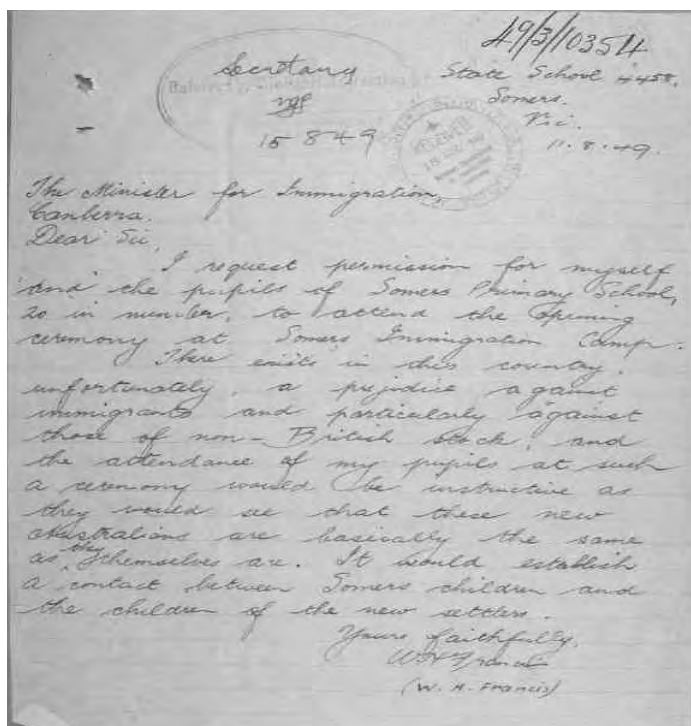 49/3/10354
Secretary
State School 4458,
Somers.
Vic.
15 8 49
RECEIVED
11.8.49.
The Minister for Immigration,
Canberra.
Dear Sir,
I request permission for myself
and the pupils of Somers Primary School,
20 in number, to attend the opening
ceremony at Somers Immigration Camp.
There exists in this country,
unfortunately, a prejudice against
immigrants and particularly against
those of non-British stock, and
the attendance of my pupils at such
a ceremony would be instructive as
they would see that these new
Australians are basically the same
as they themselves are. It would establish
a contact between Somers children and
the children of the new settlers.
Yours faithfully,
W H Francis
(W. H. Francis)